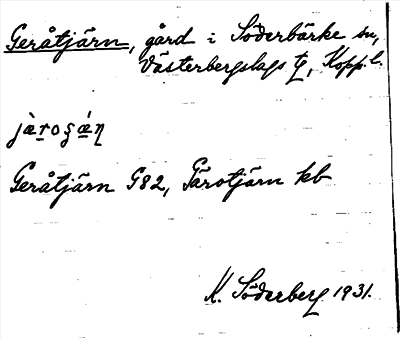 Geråtjärn, gård i Söderbärke sn,
Västerbergslags tg, Kopp. l.
jàroʂáɳ
Geråtjärn G82, Gärotjärn kb
K. Söderberg 1931.